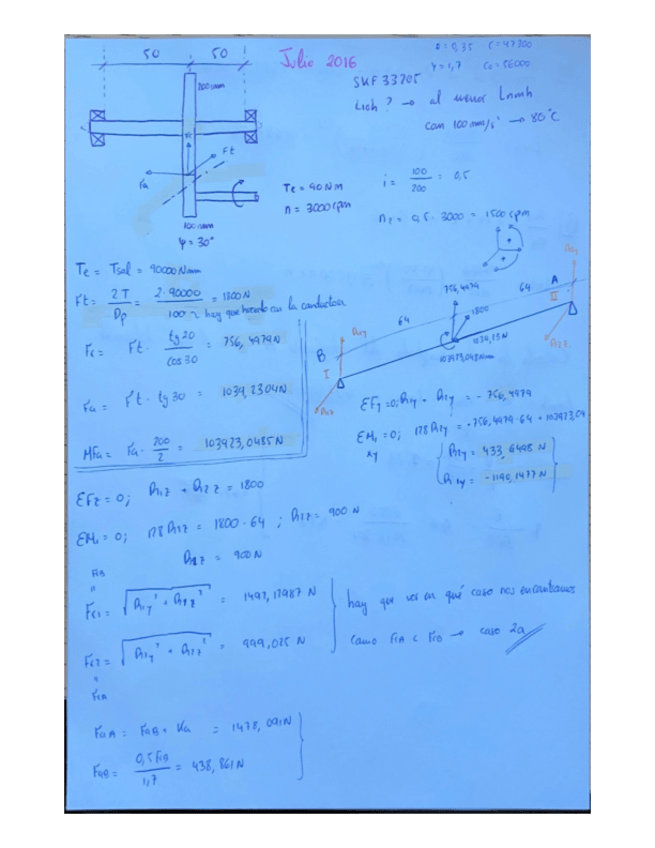 50 50
Julio 2016
e = 0,35 C = 47300
Y = 1,7 C0 = 56000
SKF 33205
L10h ? → al menos Lnmh
con 100 mm/s² → 80°C
200 mm
Ft
Fa
100 mm
φ = 30°
Te = 90 Nm
n = 3000 rpm
i = 100/200 = 0,5
n2 = 0,5 · 3000 = 1500 rpm
Te = Tsal = 90000 Nmm
Ft = 2T/Dp = 2·90000/100 = 1800 N
hay que hacerlo con la conductora
Fr = Ft · tg 20/cos 30 = 756,4979 N
Fa = Ft · tg 30 = 1039,2304 N
MFa = Fa · 200/2 = 103923,0485 N
756,4979
64
64
1800
103923,048 Nmm
A
II
B
I
ΣFy = 0; R1y + R2y = - 756,4979
ΣM1 = 0; 128 R2y = -756,4979·64 + 103923,04
xy
R2y = 433,6498 N
R1y = -1190,1477 N
ΣFz = 0; R1z + R2z = 1800
ΣM1 = 0; 128 R2z = 1800·64 ; R2z = 900 N
R1z = 900 N
FrB
=
Fr1 = √R1y² + R1z² = 1492,12987 N
Fr2 = √R2y² + R2z² = 999,025 N
=
FrA
hay que ver en qué caso nos encontramos
como FrA < FrB → caso 2a
FaA = FaB + Ka = 1478,091 N
FaB = 0,5 FrB/1,7 = 438,861 N